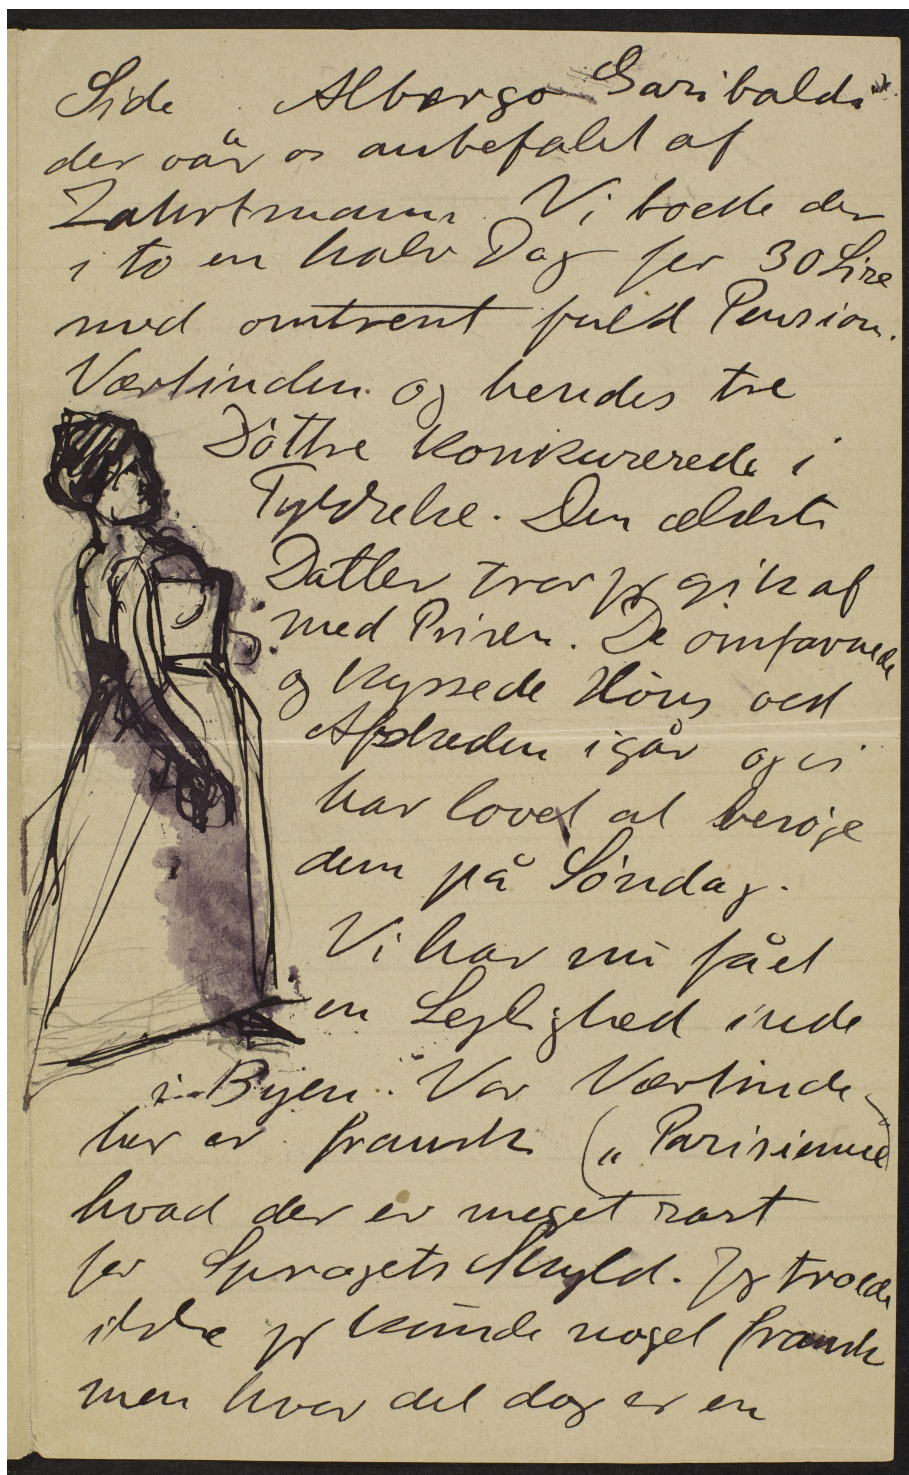 Side Albergo Garibaldi"
der var os anbefalet af
Zahrtmann. Vi boede der
i to en halv Dag for 30 Lire
med omtrent fuld Pension.
Værtinden og hendes tre
Döttre konkurerede i
Tykkelse. Den ældste
Datter tror jeg gik af
med Prisen. De omfavnede
og kyssede Höns ved
Afskeden igår og vi
har lovet at besöge
dem på Söndag.
Vi har nu fået
en Lejlighed inde
i Byen. Vor Værtinde
her er fransk („Parisienne)
hvad der er meget rart
for Sprogets Skyld. Jeg troede
ikke jeg kunde noget fransk
men hvor det dog er en